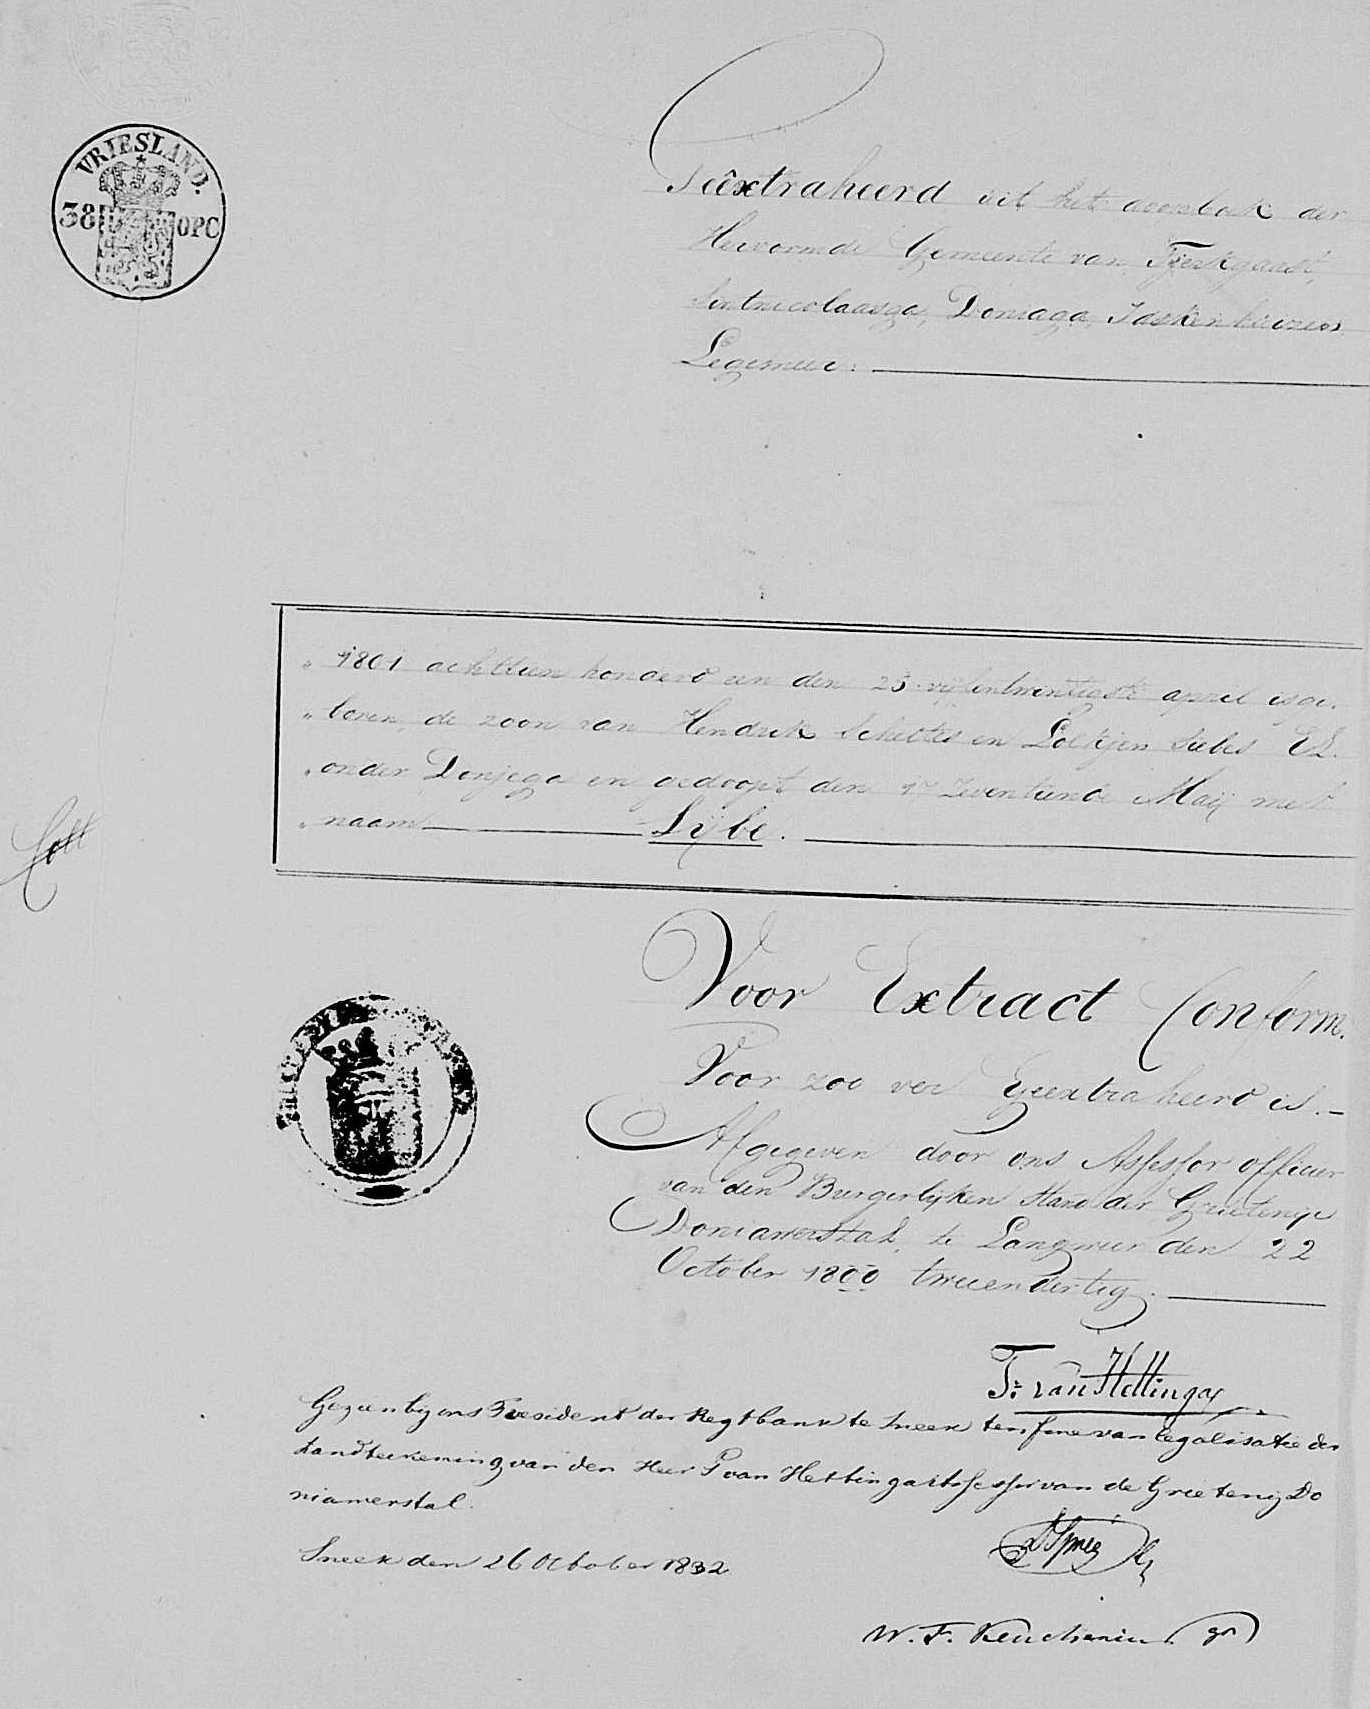 VRIESLAND.
38 OPC
Geëxtraheerd uit het doopboek der
Hervormde Gemeente van Tjerkgaast,
Sintnicolaasga, Doniaga, Idskenhuizen
Legemeer.
" 1801 achttien honderd een den 25 vijfentwintigste april is ge-
" boren, de zoon van Hendrik Scheltes en Loltjen Siebes E.L.
" onder Donjega en gedoopt den 17 Zeventiende Maij met
" naam Sijbe.
Voor Extract Conform.
Voor zoo ver Geextraheerd is.
Afgegeven door ons Assessor officier
van den Burgerlijken Stand der Grietenije
Doniawerstal, te Langweer den 22
October 1800 tweeendertig.
T. van Hettinga
Gezien bij ons President der Regtbank te Sneek ten fine van legalisatie der
handteekening van den Heer T van Hettinga Assessor van de Grietenij Do
niawerstal.
Sneek den 26 October 1832
W. F. Keuchenius gr